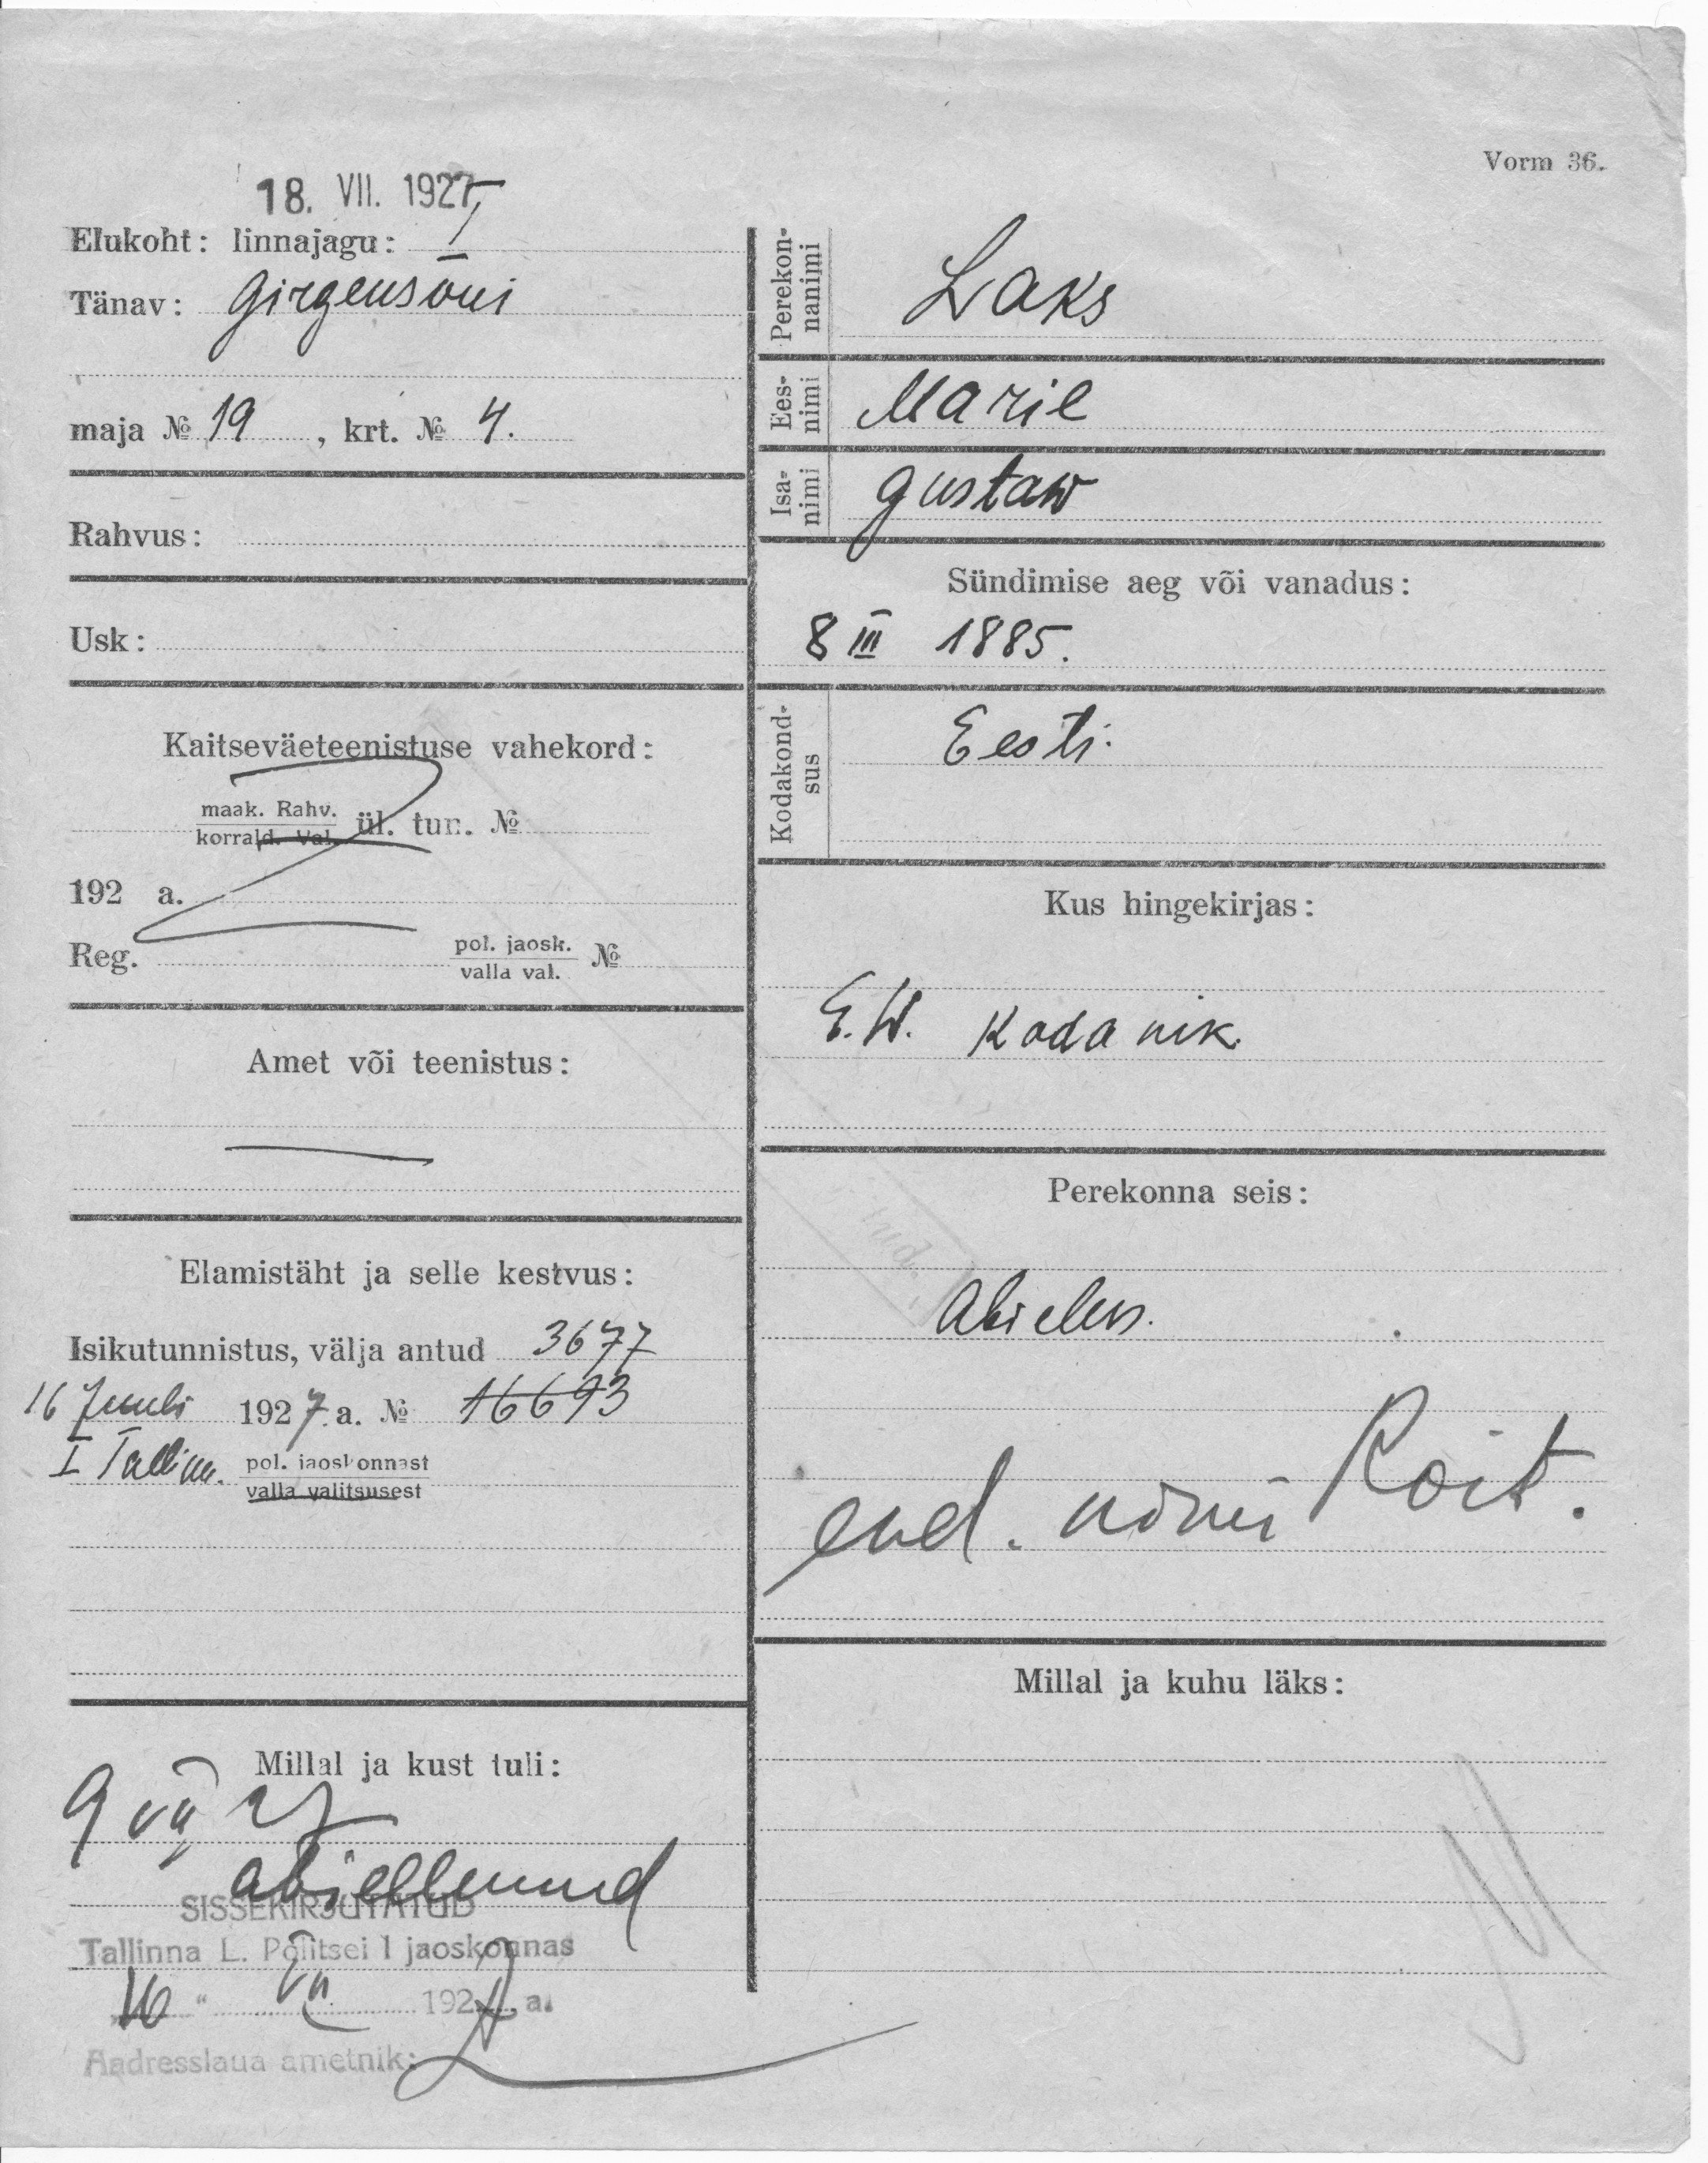 Vorm 36.
18. VII. 1927
Elukoht: linnajagu: I
Tänav: Girgensoni
maja № 19, krt. № 4.
Rahvus:
Usk:
Kaitseväeteenistuse vahekord:
maak. Rahv.
korrald. Val. ül. tun. №
192 a.
Reg. pol. jaosk.
valla val. №
Amet või teenistus:
Elamistäht ja selle kestvus:
Isikutunnistus, välja antud 3677
16 Juuli 1927. a. № 16693
I Tallinn. pol. jaoskonnast
valla valitsusest
Millal ja kust tuli:
9 VII 27
abiellunud
SISSEKIRJUTATUD
Tallinna L. Politsei I jaoskonnas
„16“ VII 1927 a.
Aadresslaua ametnik:
Perekon-
nanimi
Laks
Ees-
nimi
Marie
Isa-
nimi
Gustaw
Sündimise aeg või vanadus:
8 III 1885.
Kodakond-
sus
Eesti.
Kus hingekirjas:
E.W. Kodanik.
Perekonna seis:
Abielus.
end. nimi Roit.
Millal ja kuhu läks: